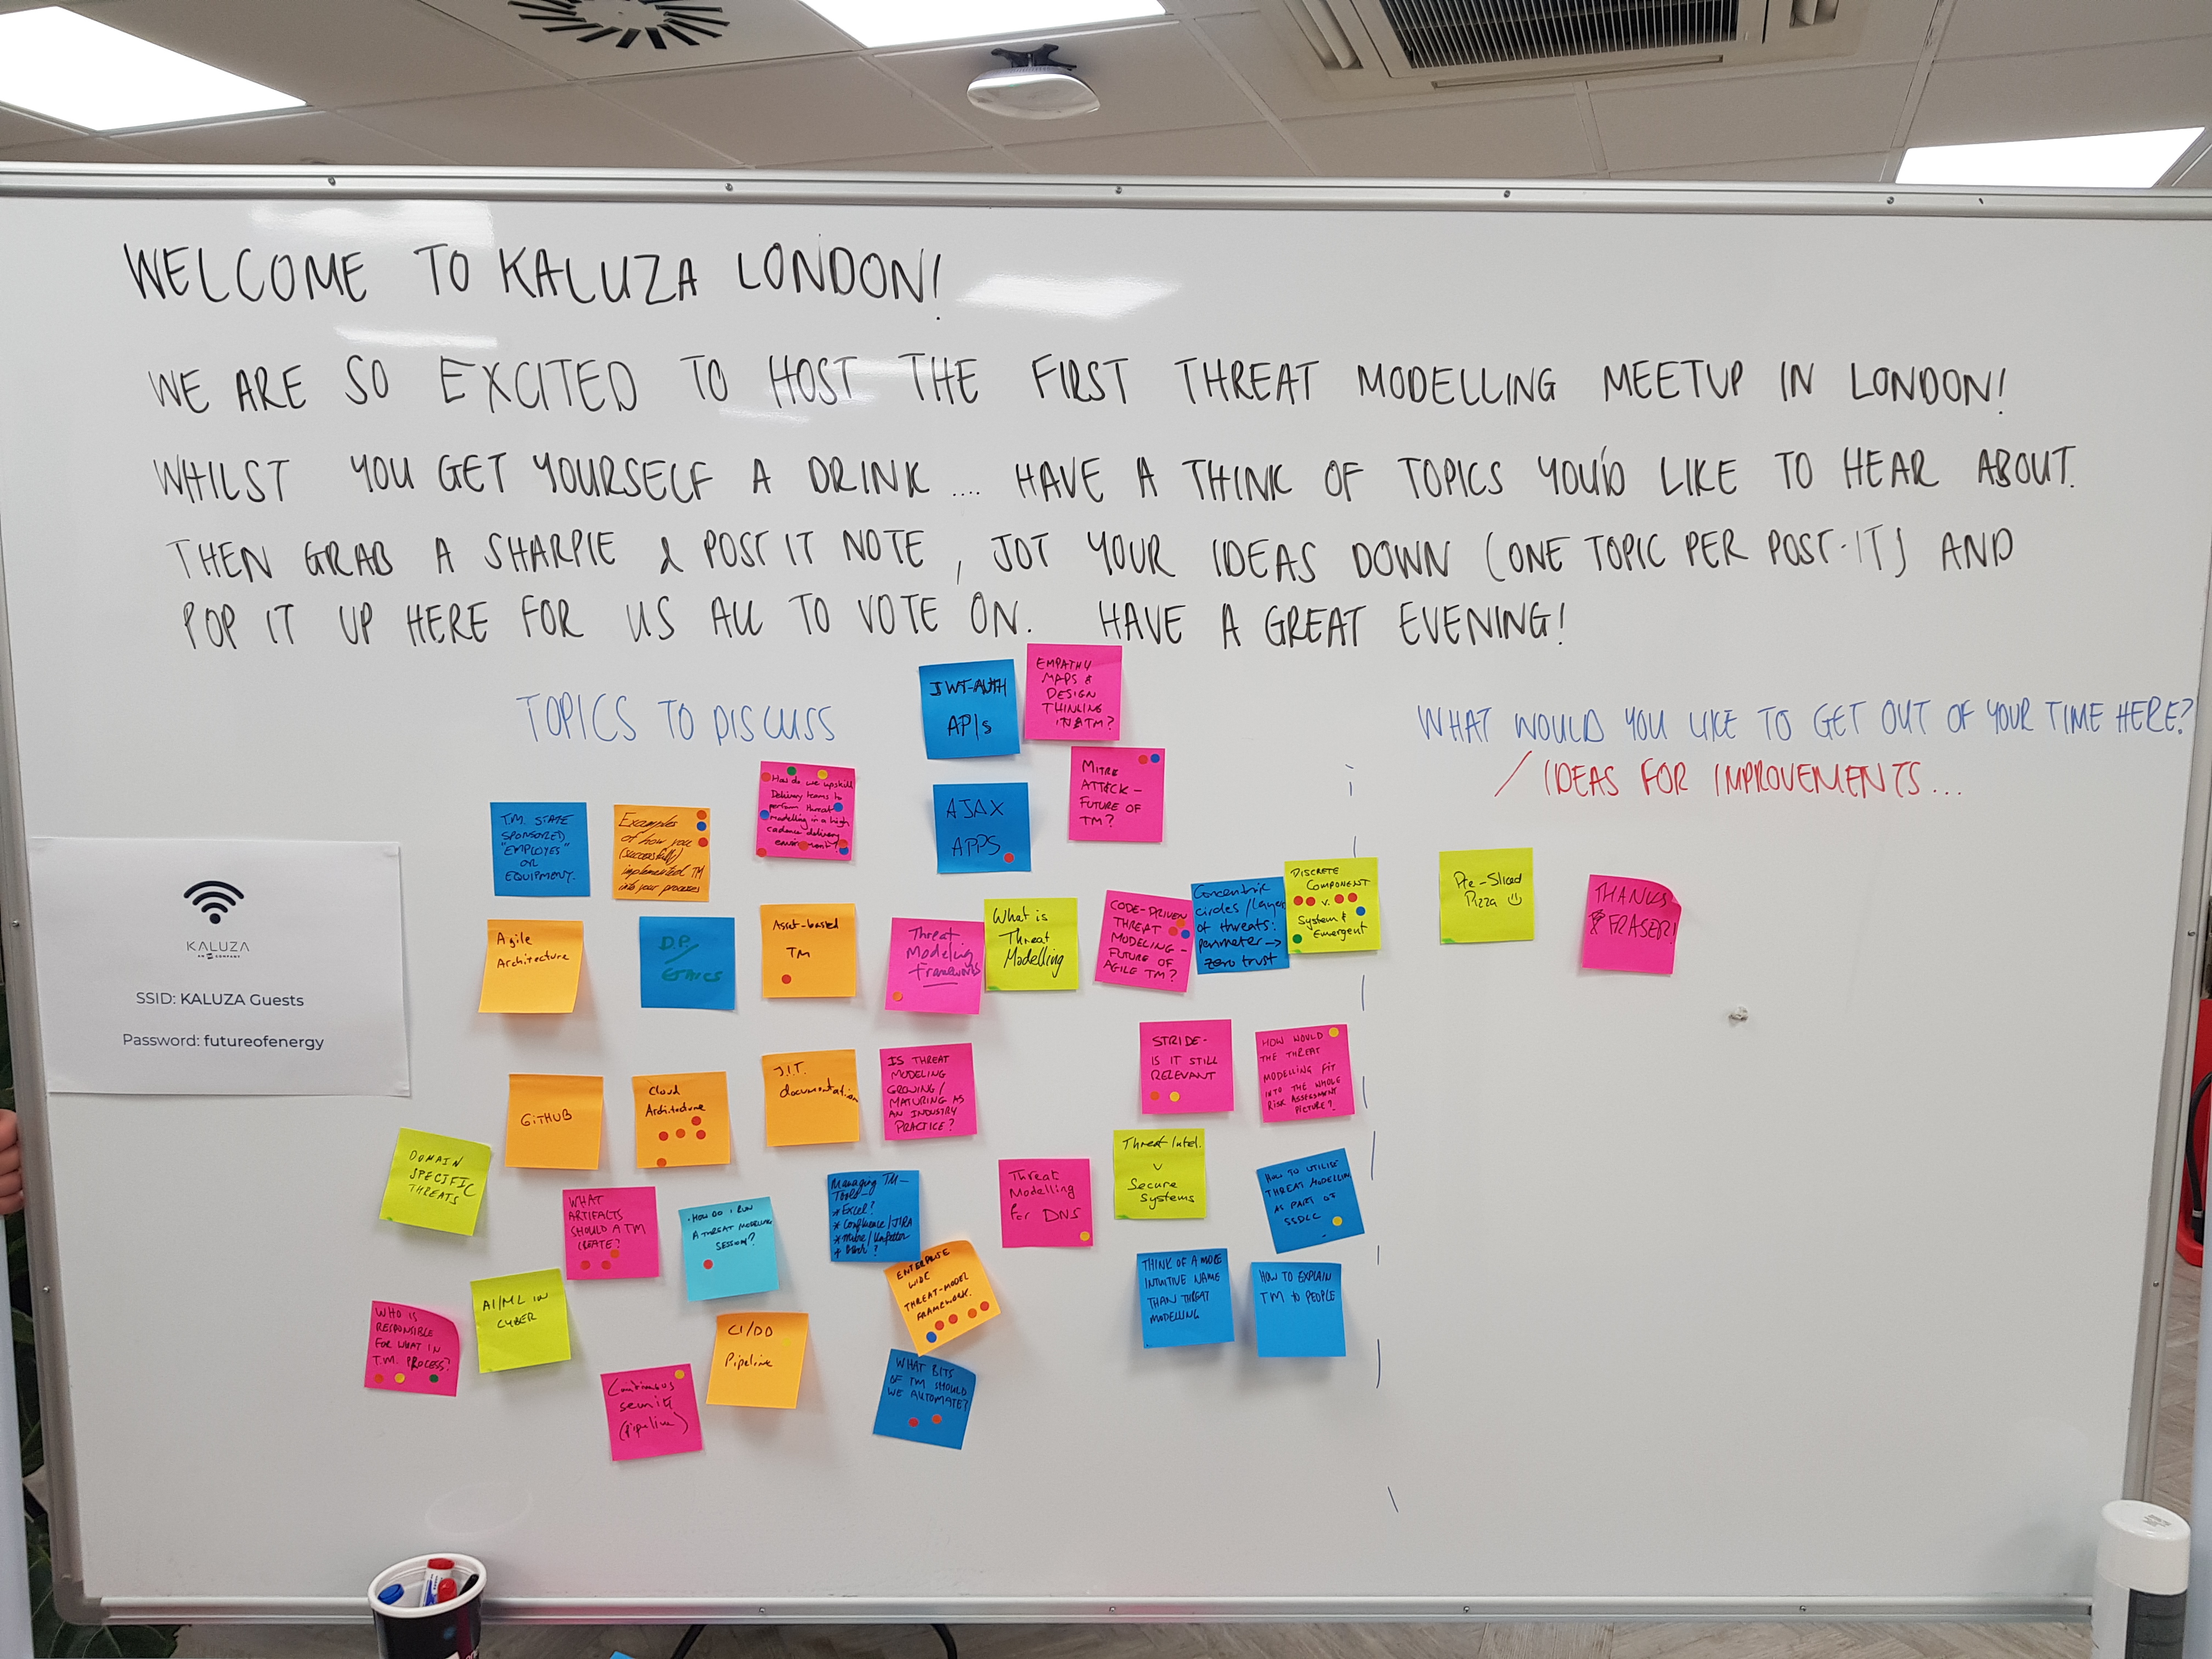 WELCOME TO KALUZA LONDON!
WE ARE SO EXCITED TO HOST THE FIRST THREAT MODELLING MEETUP IN LONDON!
WHILST YOU GET YOURSELF A DRINK .... HAVE A THINK OF TOPICS YOU'D LIKE TO HEAR ABOUT.
THEN GRAB A SHARPIE & POST IT NOTE, JOT YOUR IDEAS DOWN (ONE TOPIC PER POST-IT) AND
POP IT UP HERE FOR US ALL TO VOTE ON. HAVE A GREAT EVENING!
TOPICS TO DISCUSS
JWT-AUTH
APIs
EMPATHY
MAPS &
DESIGN
THINKING
IN TM?
How do we upskill
Delivery teams to
perform threat
modelling in a high
cadence delivery
environment?
AJAX
APPS
MITRE
ATT&CK -
FUTURE OF
TM?
T.M. STATE
SPONSORED
"EMPLOYES"
OR
EQUIPMENT.
Examples
of how you
(successfully)
implemented TM
into your processes
Agile
Architecture
D.P./
ETHICS
Asset-based
TM
Threat
Modeling
frameworks
What is
Threat
Modelling
CODE-DRIVEN
THREAT
MODELING -
FUTURE OF
AGILE TM?
Concentric
circles/layers
of threats:
perimeter →
zero trust
DISCRETE
COMPONENT
v.
System &
Emergent
GITHUB
Cloud
Architecture
J.I.T.
documentation
IS THREAT
MODELING
GROWING/
MATURING AS
AN INDUSTRY
PRACTICE?
STRIDE-
IS IT STILL
RELEVANT
HOW WOULD
THE THREAT
MODELLING FIT
INTO THE WHOLE
RISK ASSESSMENT
PICTURE?
DOMAIN
SPECIFIC
THREATS
WHAT
ARTIFACTS
SHOULD A TM
CREATE?
HOW DO I RUN
A THREAT MODELLING
SESSION?
Managing TM -
Tools -
* Excel?
* Confluence/JIRA
Threat
Modelling
for DNS
Threat Intel.
v
Secure
Systems
HOW TO UTILISE
THREAT MODELLING
AS PART OF
SSDLC
WHO IS
RESPONSIBLE
FOR WHAT IN
T.M. PROCESS?
AI/ML IN
CYBER
Continuous
security
(pipeline)
CI/DD
Pipeline
ENTERPRISE
WIDE
THREAT-MODEL
FRAMEWORK.
WHAT BITS
OF TM SHOULD
WE AUTOMATE?
THINK OF A MORE
INTUITIVE NAME
THAN THREAT
MODELLING
HOW TO EXPLAIN
TM TO PEOPLE
WHAT WOULD YOU LIKE TO GET OUT OF YOUR TIME HERE?
/ IDEAS FOR IMPROVEMENTS...
Pre-Sliced
Pizza
THANKS
FRASER!
KALUZA
SSID: KALUZA Guests
Password: futureofenergy